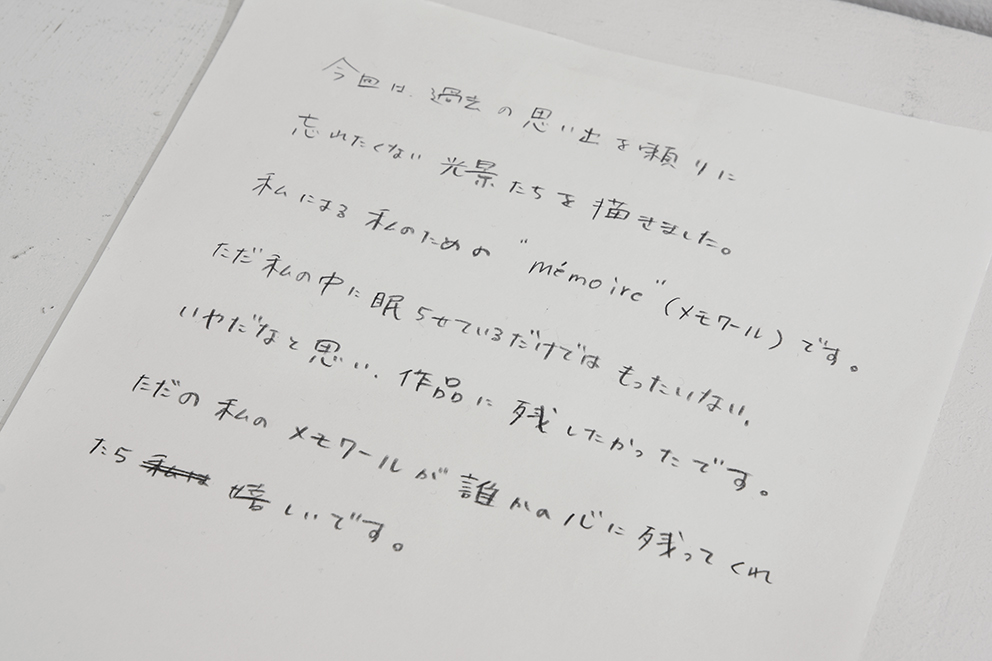 今回は、過去の思い出を頼りに
忘れたくない光景たちを描きました。
私による私のための"mémoire"(メモワール)です。
ただ私の中に眠らせているだけではもったいない、
いやだなと思い、作品に残したかったです。
ただの私のメモワールが誰かの心に残ってくれ
たら私は嬉しいです。